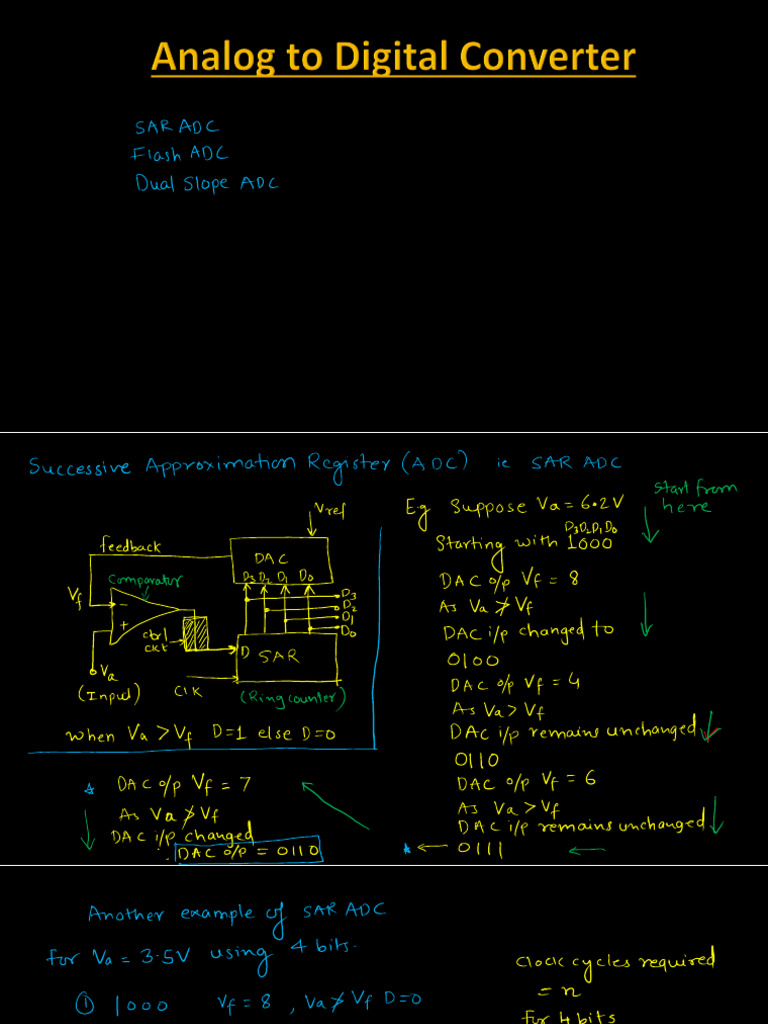 Analog to Digital Converter
SAR ADC
Flash ADC
Dual Slope ADC
Successive Approximation Register (ADC) ie SAR ADC
Vref
feedback
DAC
D3 D2 D1 D0
Comparator
Vf
-
+
ctrl
ckt
D3
D2
D1
D0
D SAR
Va
(Input)
Clk
(Ring counter)
when Va > Vf D=1 else D=0
Eg Suppose Va = 6.2V
Start from
here
D3D2D1D0
Starting with 1000
DAC o/p Vf = 8
As Va ≯ Vf
DAC i/p changed to
0100
DAC o/p Vf = 4
As Va > Vf
DAC i/p remains unchanged
0110
DAC o/p Vf = 6
As Va > Vf
DAC i/p remains unchanged
* ← 0111
* DAC o/p Vf = 7
As Va ≯ Vf
DAC i/p changed
∴ DAC o/p = 0110
Another example of SAR ADC
for Va = 3.5V using 4 bits.
① 1000 Vf = 8 , Va ≯ Vf D=0
Clock cycles required
= n
for 4 bits